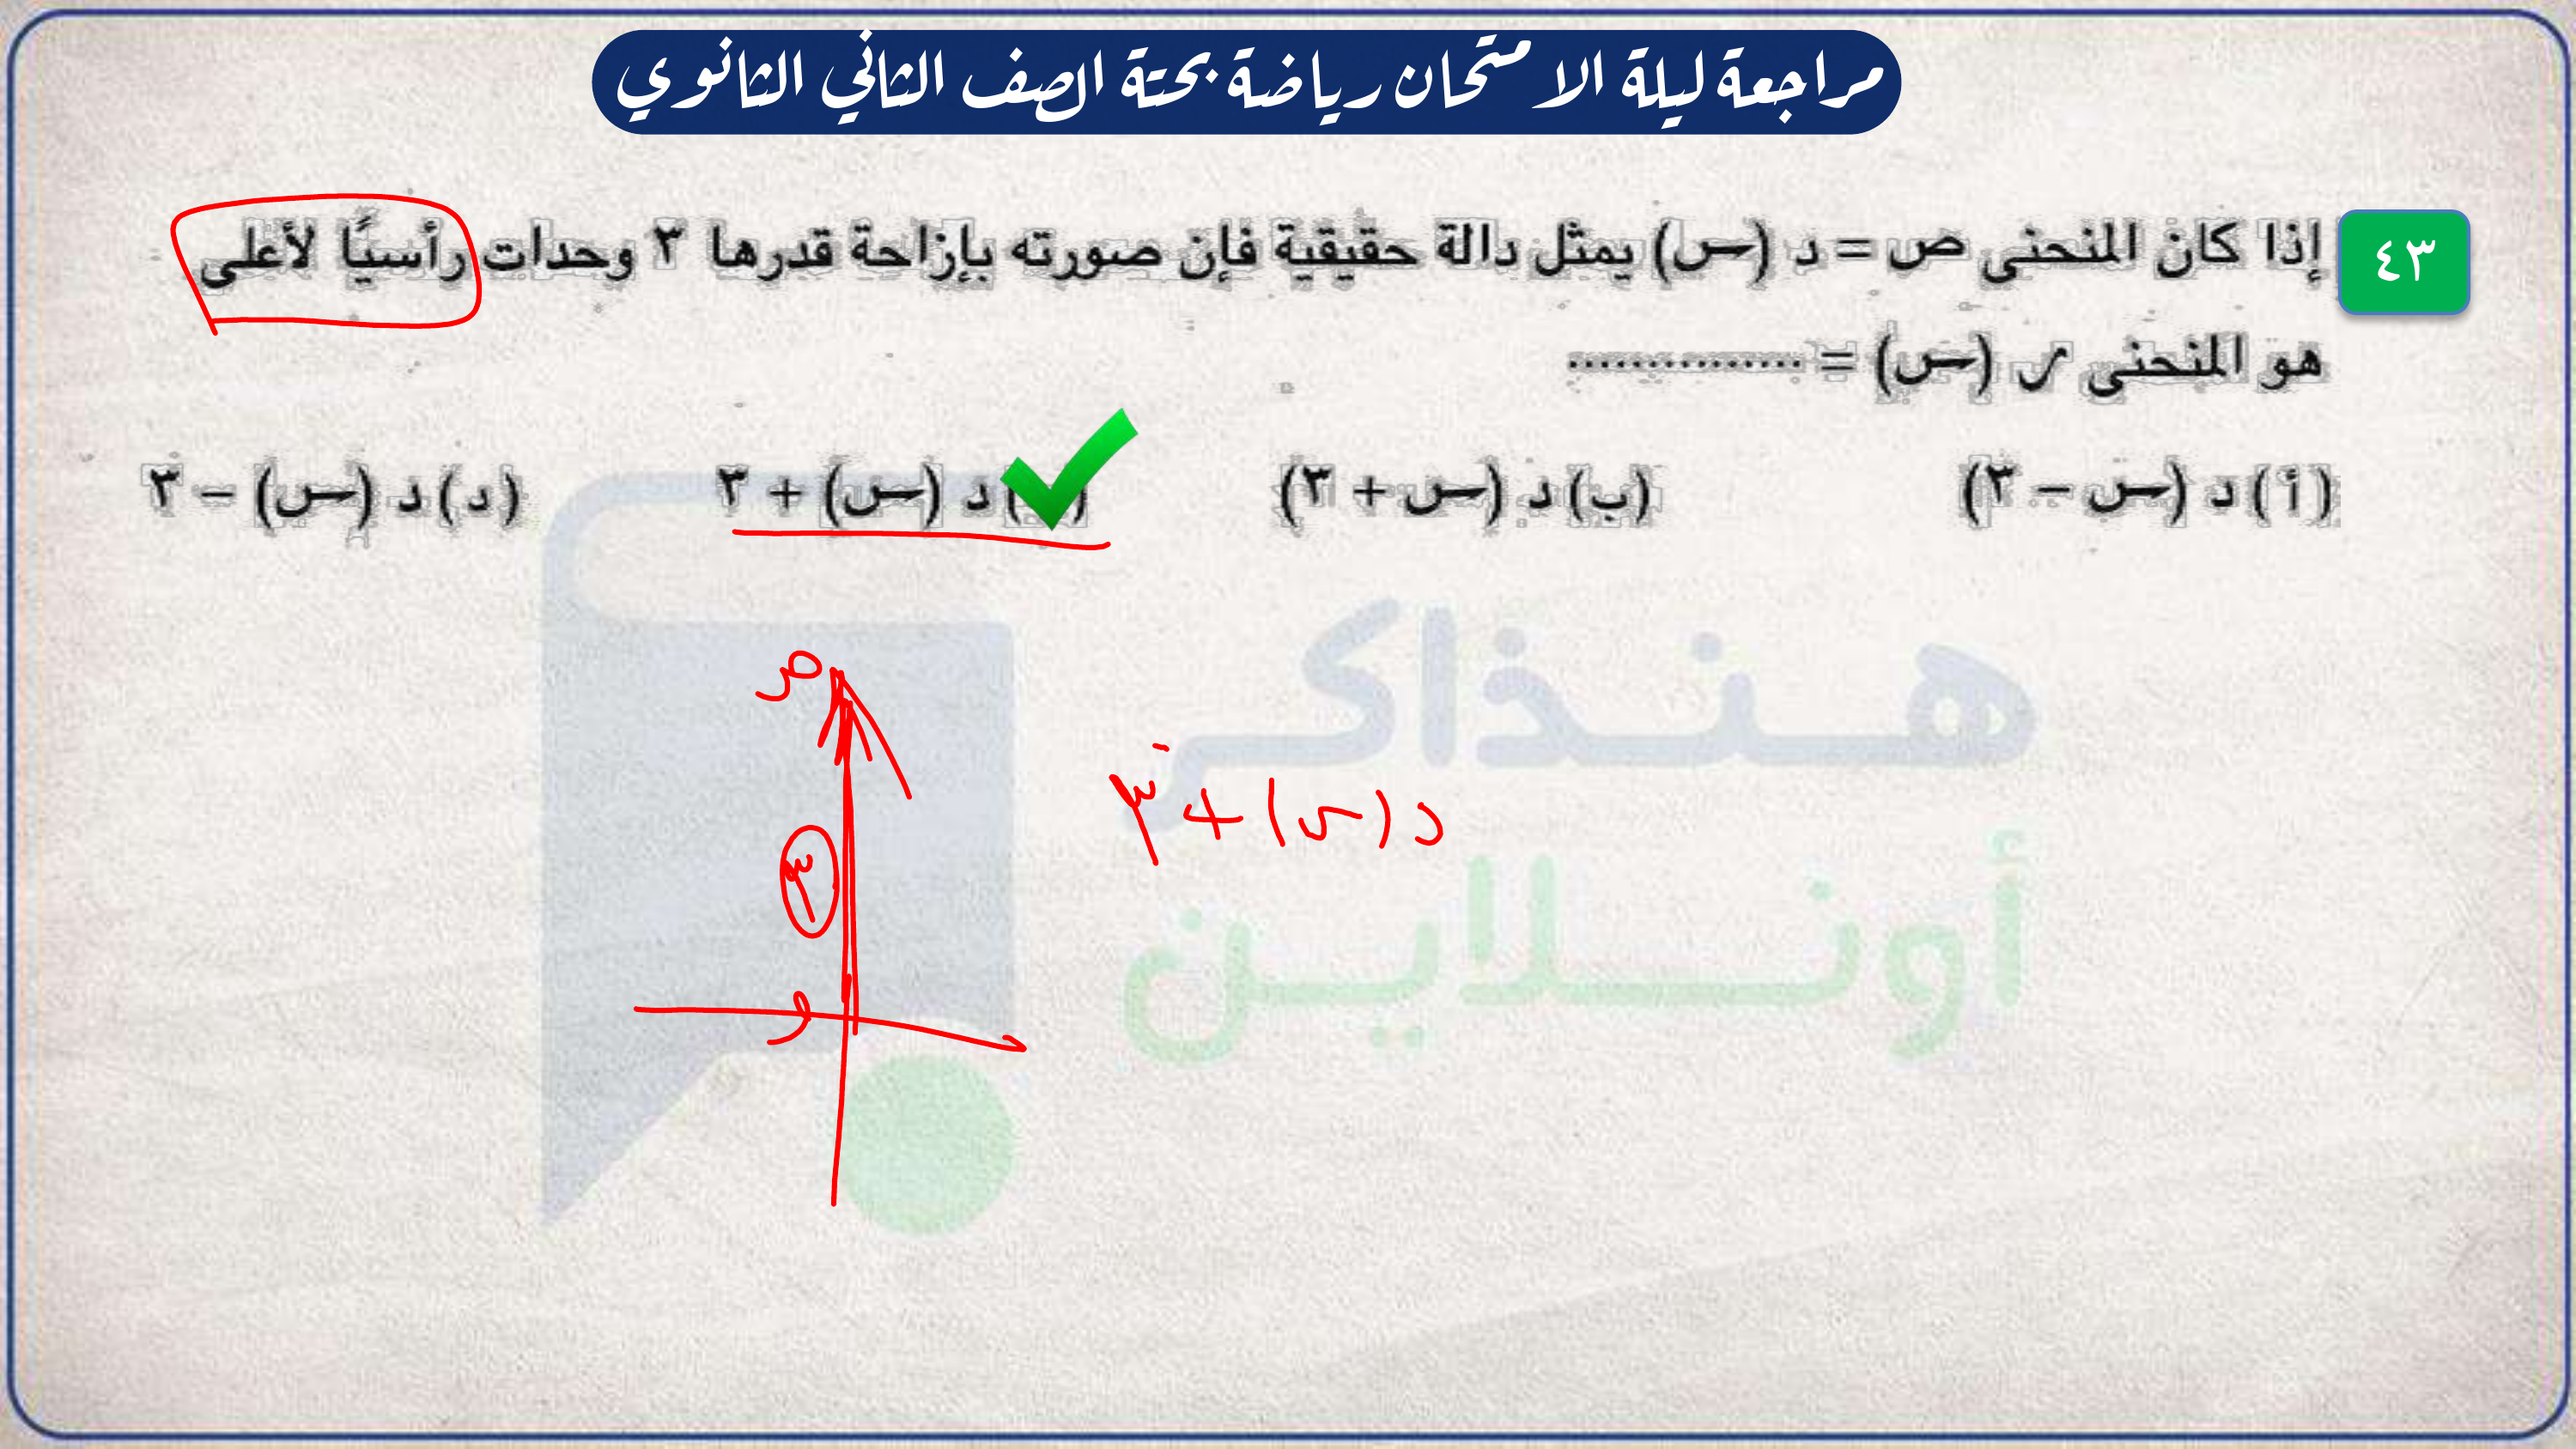 مراجعة ليلة الامتحان رياضة بحتة الصف الثاني الثانوي
٤٣ إذا كان المنحنى ص = د (س) يمثل دالة حقيقية فإن صورته بإزاحة قدرها ٣ وحدات رأسيًا لأعلى
هو المنحنى ر (س) = ...............
(أ) د (س – ٣) (ب) د (س + ٣) د (س) + ٣ (د) د (س) – ٣
ص
د (س) + ٣
٣
و
هنذاكر
أونلاين